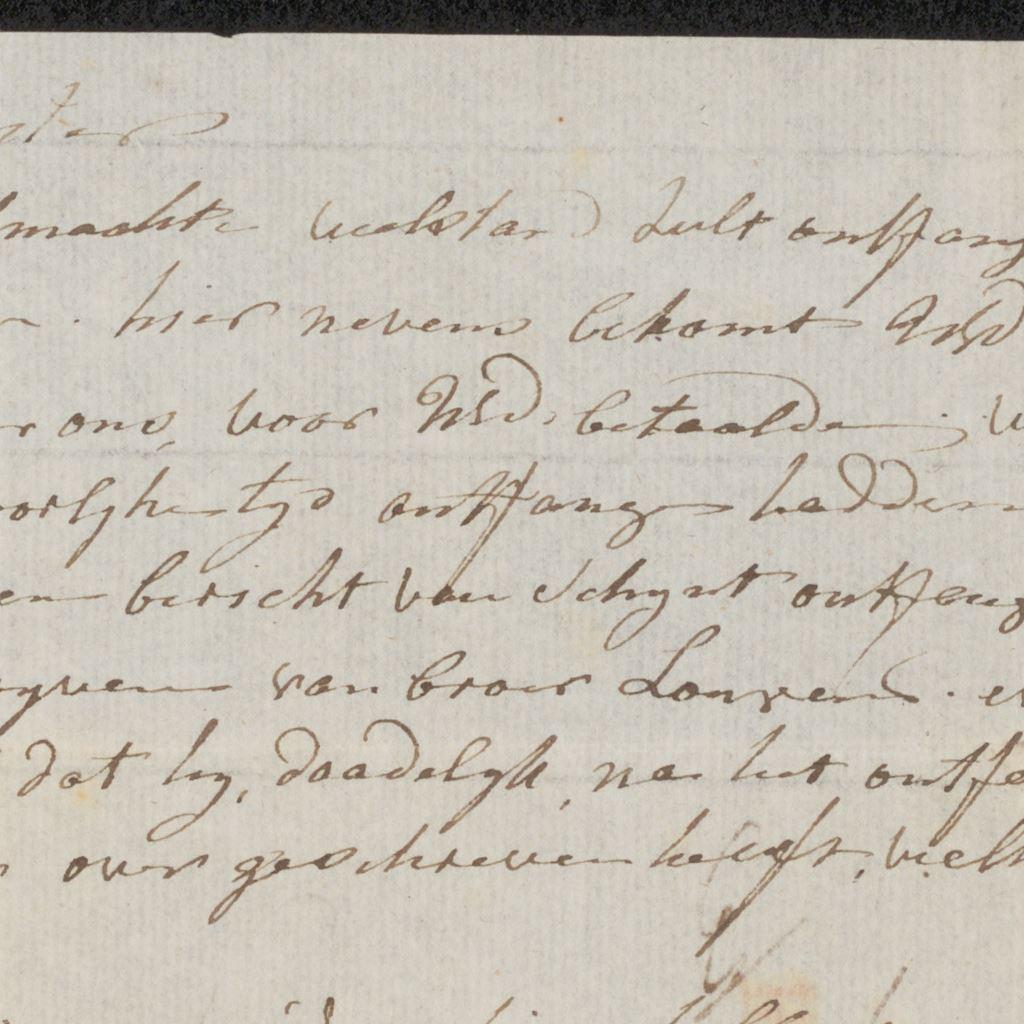 maakte welstand zult ontfang
hier nevens bekomt UEd
ons, voor UEd. betaalde; 
oorlyke tyd ontfange hadden
en bericht van Schynt ontfeng
van broer Lourens. en
dat hy, daadelyk, na het ontfe
over geschreven heeft, welk